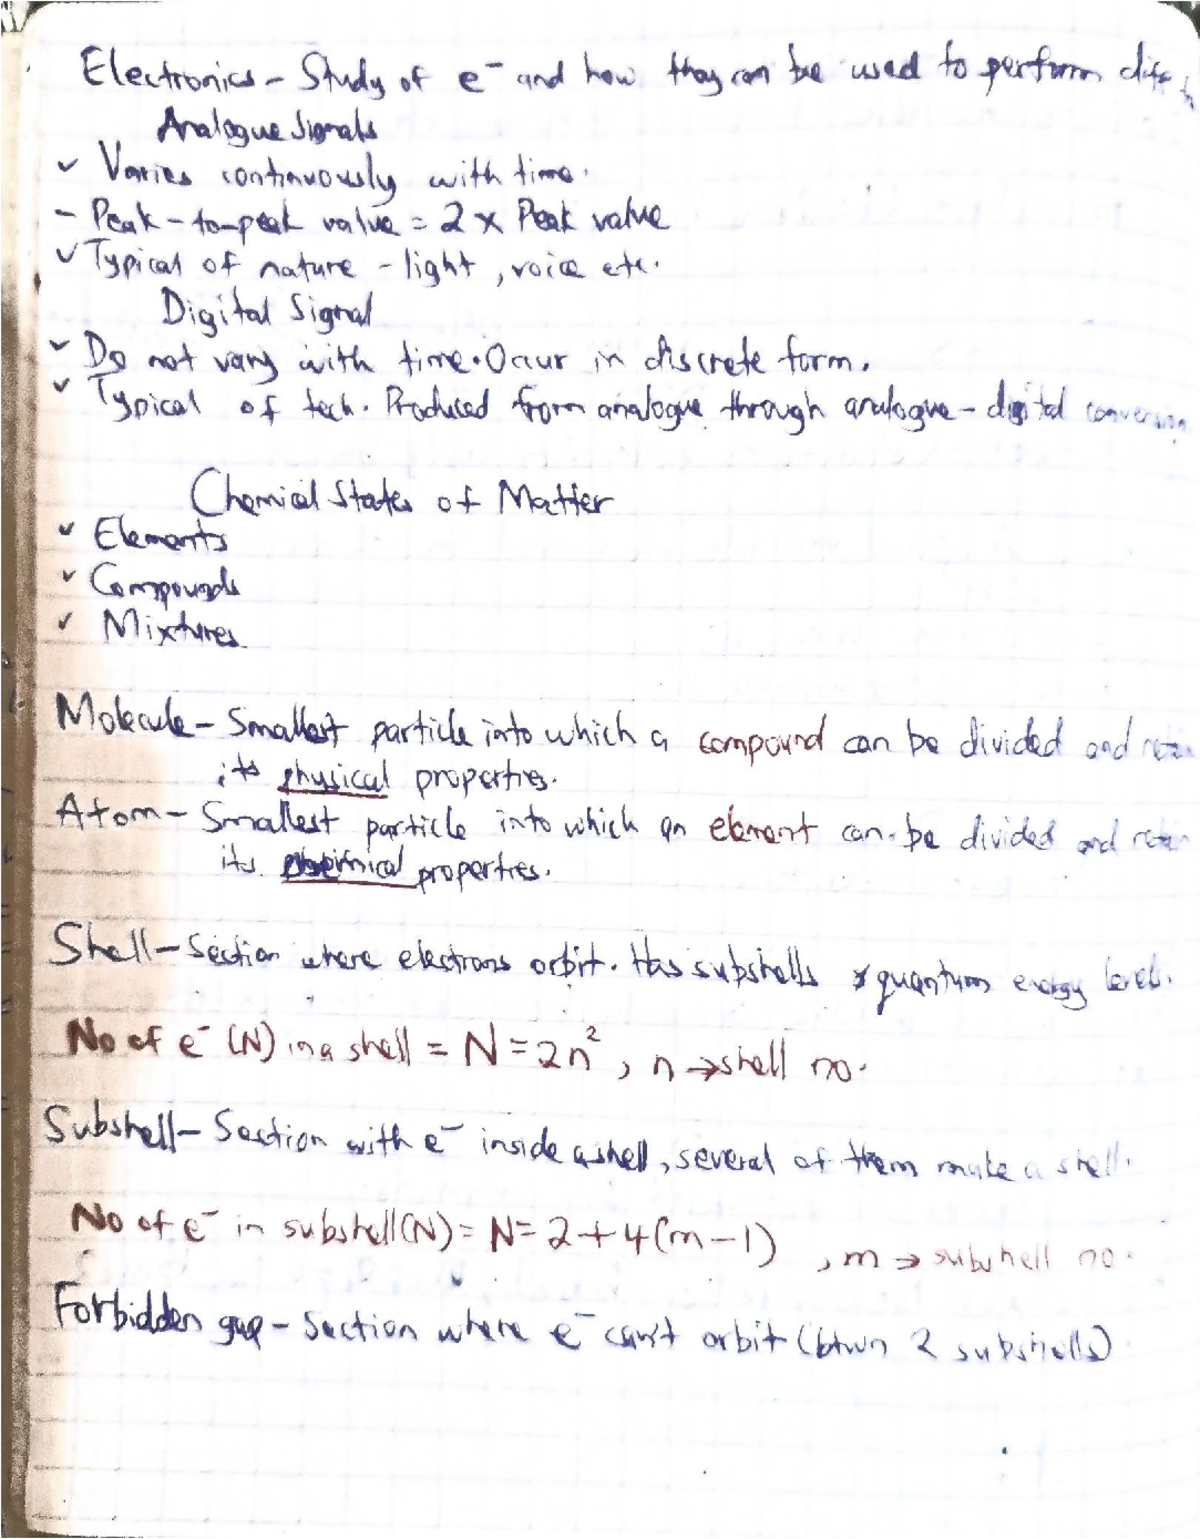 Electronics - Study of e⁻ and how they can be used to perform diff
Analogue Signals
✓ Varies continuously with time.
- Peak-to-peak value = 2 x Peak value
✓ Typical of nature - light, voice etc.
Digital Signal
✓ Do not vary with time. Occur in discrete form.
✓ Typical of tech. Produced from analogue through analogue-digital conversion
Chemical States of Matter
✓ Elements
✓ Compounds
✓ Mixtures
Molecule - Smallest particle into which a compound can be divided and retain
its physical properties.
Atom - Smallest particle into which an element can be divided and retain
its chemical properties.
Shell - Section where electrons orbit. Has subshells quantum energy levels.
No of e⁻ (N) in a shell = N = 2n², n → shell no.
Subshell - Section with e⁻ inside a shell, several of them make a shell.
No of e⁻ in subshell (N) = N = 2 + 4(m - 1), m → subshell no.
Forbidden gap - Section where e⁻ can't orbit (btwn 2 subshells)